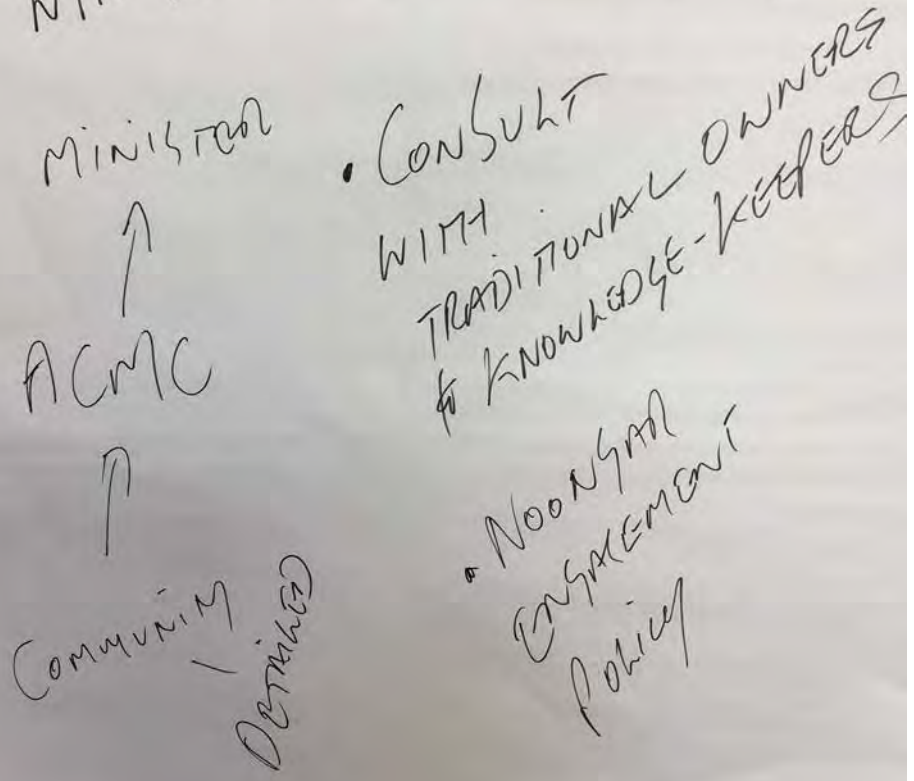 MINISTER
ACMC
COMMUNITY
DETAILED
• CONSULT
WITH
TRADITIONAL OWNERS
& KNOWLEDGE-KEEPERS
• NOONGAR
ENGAGEMENT
POLICY